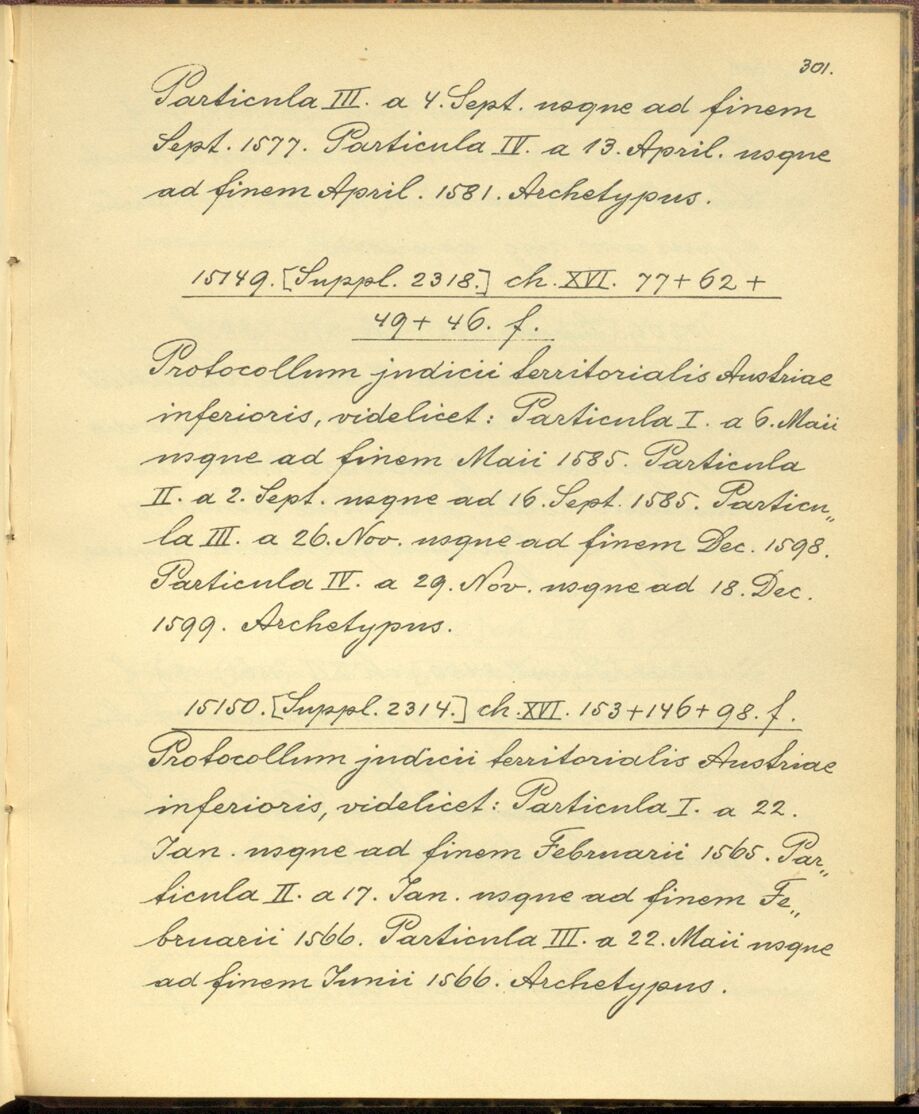 301.
Particula III. a 4. Sept. usque ad finem
Sept. 1577. Particula IV. a 13. April. usque
ad finem April. 1581. Archetypus.
15149. [Suppl. 2318.] ch. XVI. 77+62+
49+46. f.
Protocollum judicii territorialis Austriae
inferioris, videlicet: Particula I. a 6. Maii
usque ad finem Maii 1585. Particula
II. a 2. Sept. usque ad 16. Sept. 1585. Particu„
la III. a 26. Nov. usque ad finem Dec. 1598.
Particula IV. a 29. Nov. usque ad 18. Dec.
1599. Archetypus.
15150. [Suppl. 2314.] ch. XVI. 153+146+98. f.
Protocollum judicii territorialis Austriae
inferioris, videlicet: Particula I. a 22.
Ian. usque ad finem Februarii 1565. Par„
ticula II. a 17. Ian. usque ad finem Fe„
bruarii 1566. Particula III. a 22. Maii usque
ad finem Iunii 1566. Archetypus.